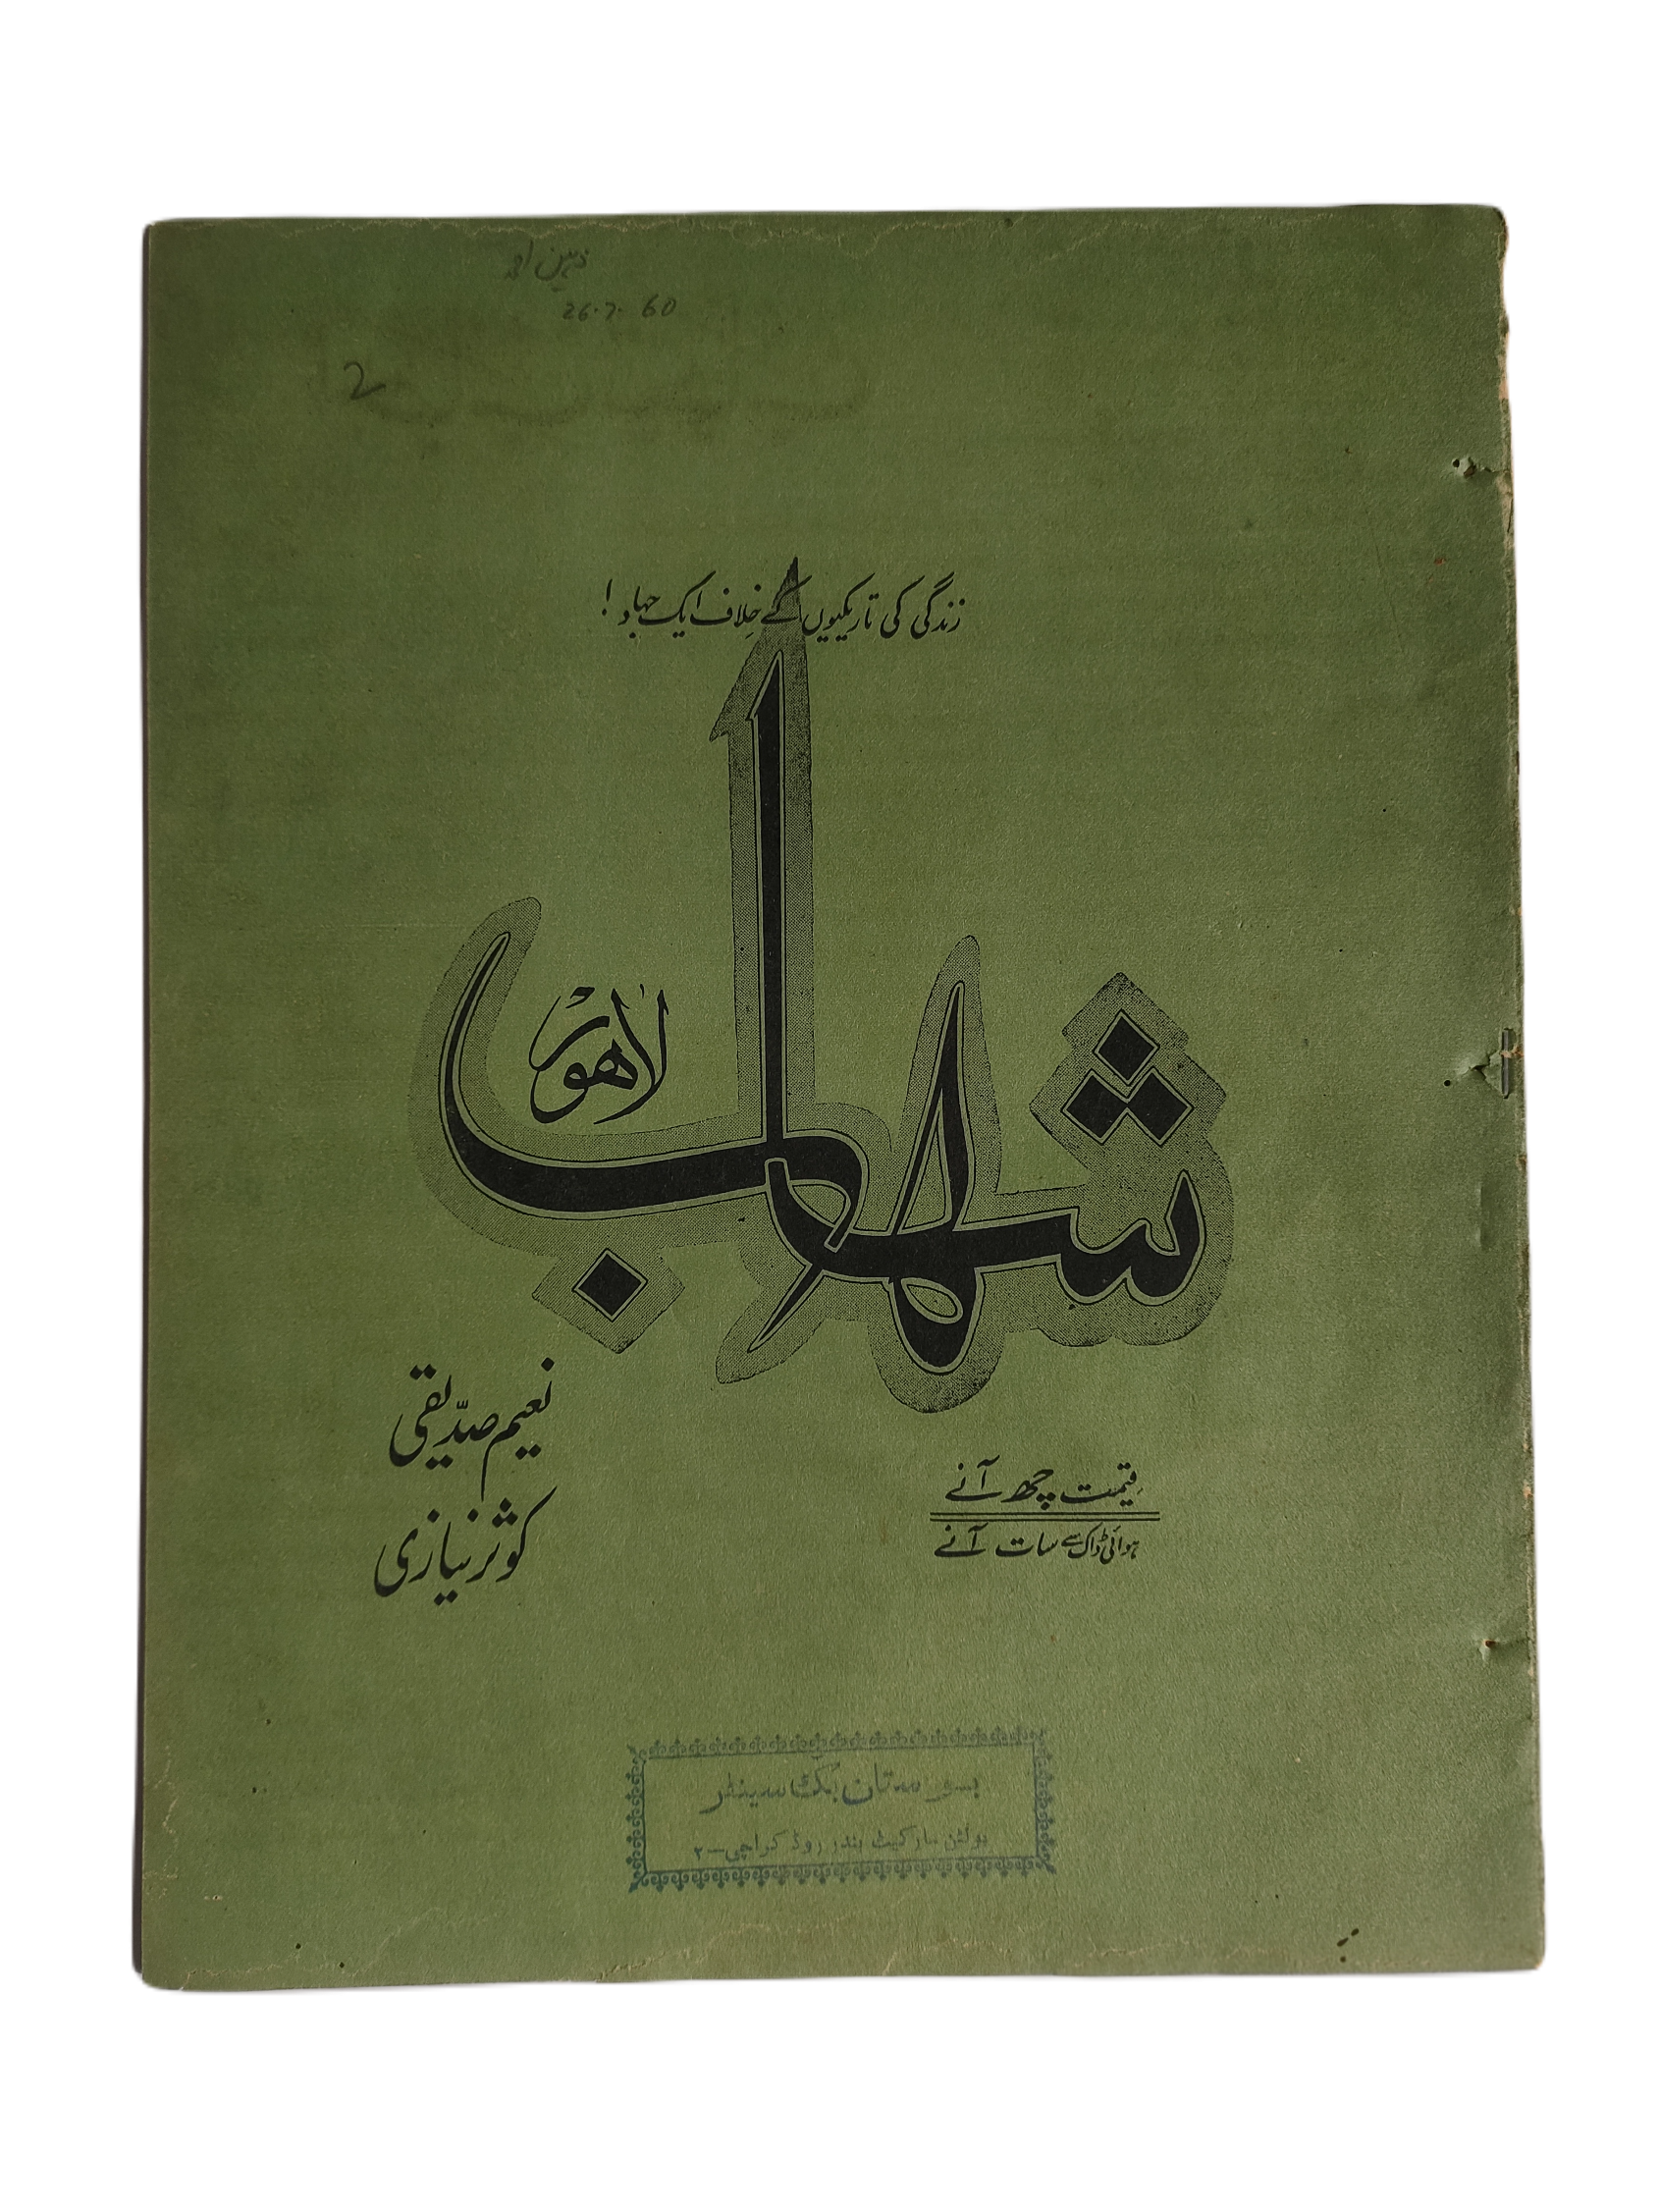 ذہین احمد
26.7.60
2
زندگی کی تاریکیوں کے خلاف ایک جہاد!
شہاب
لاهور
نعیم صدّیقی
کوثر نیازی
قیمت چھ آنے
ہوائی ڈاک سے سات آنے
بک سینٹر
بولٹن مارکیٹ بندر روڈ کراچی-۲